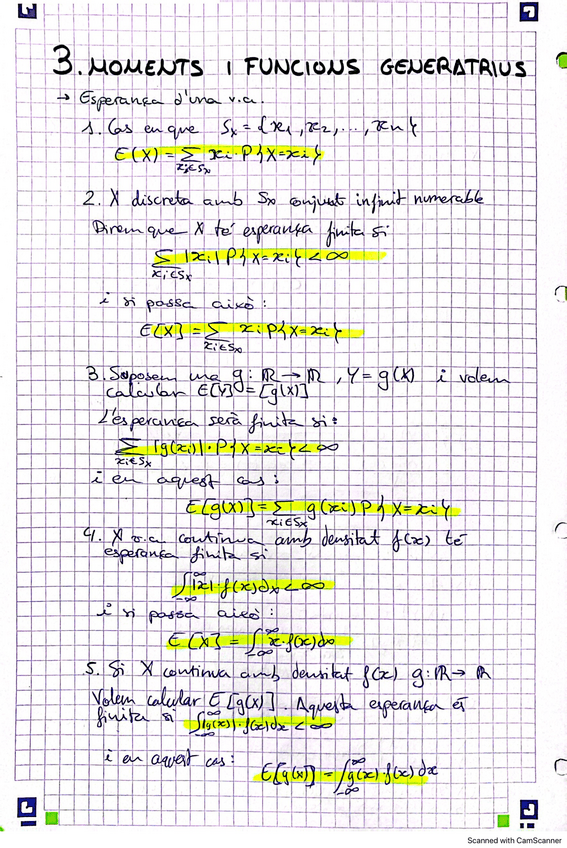 3. MOMENTS I FUNCIONS GENERATRIUS
→ Esperança d'una v.a.
1. Cas en que Sx = {x1, x2, ..., xn}
E(X) = ∑ xi · P{X=xi}
xi∈Sx
2. X discreta amb Sx conjunt infinit numerable
Direm que X té esperança finita si
∑ |xi| P{X=xi} < ∞
xi∈Sx
i si passa això:
E[X] = ∑ xi P{X=xi}
xi∈Sx
3. Suposem una g: ℝ → ℝ, Y = g(X) i volem
calcular E[Y] = [g(X)]
L'esperança serà finita si:
∑ |g(xi)| · P{X=xi} < ∞
xi∈Sx
i en aquest cas:
E[g(X)] = ∑ g(xi) P{X=xi}
xi∈Sx
4. X v.a contínua amb densitat f(x) té
esperança finita si
∫_{-∞}^{∞} |x| · f(x)dx < ∞
i si passa això:
E[X] = ∫_{-∞}^{∞} x · f(x)dx
5. Si X contínua amb densitat f(x) g: ℝ → ℝ
Volem calcular E[g(X)]. Aquesta esperança és
finita si ∫_{-∞}^{∞} |g(x)| · f(x)dx < ∞
i en aquest cas: E[g(X)] = ∫_{-∞}^{∞} g(x) · f(x) dx
Scanned with CamScanner